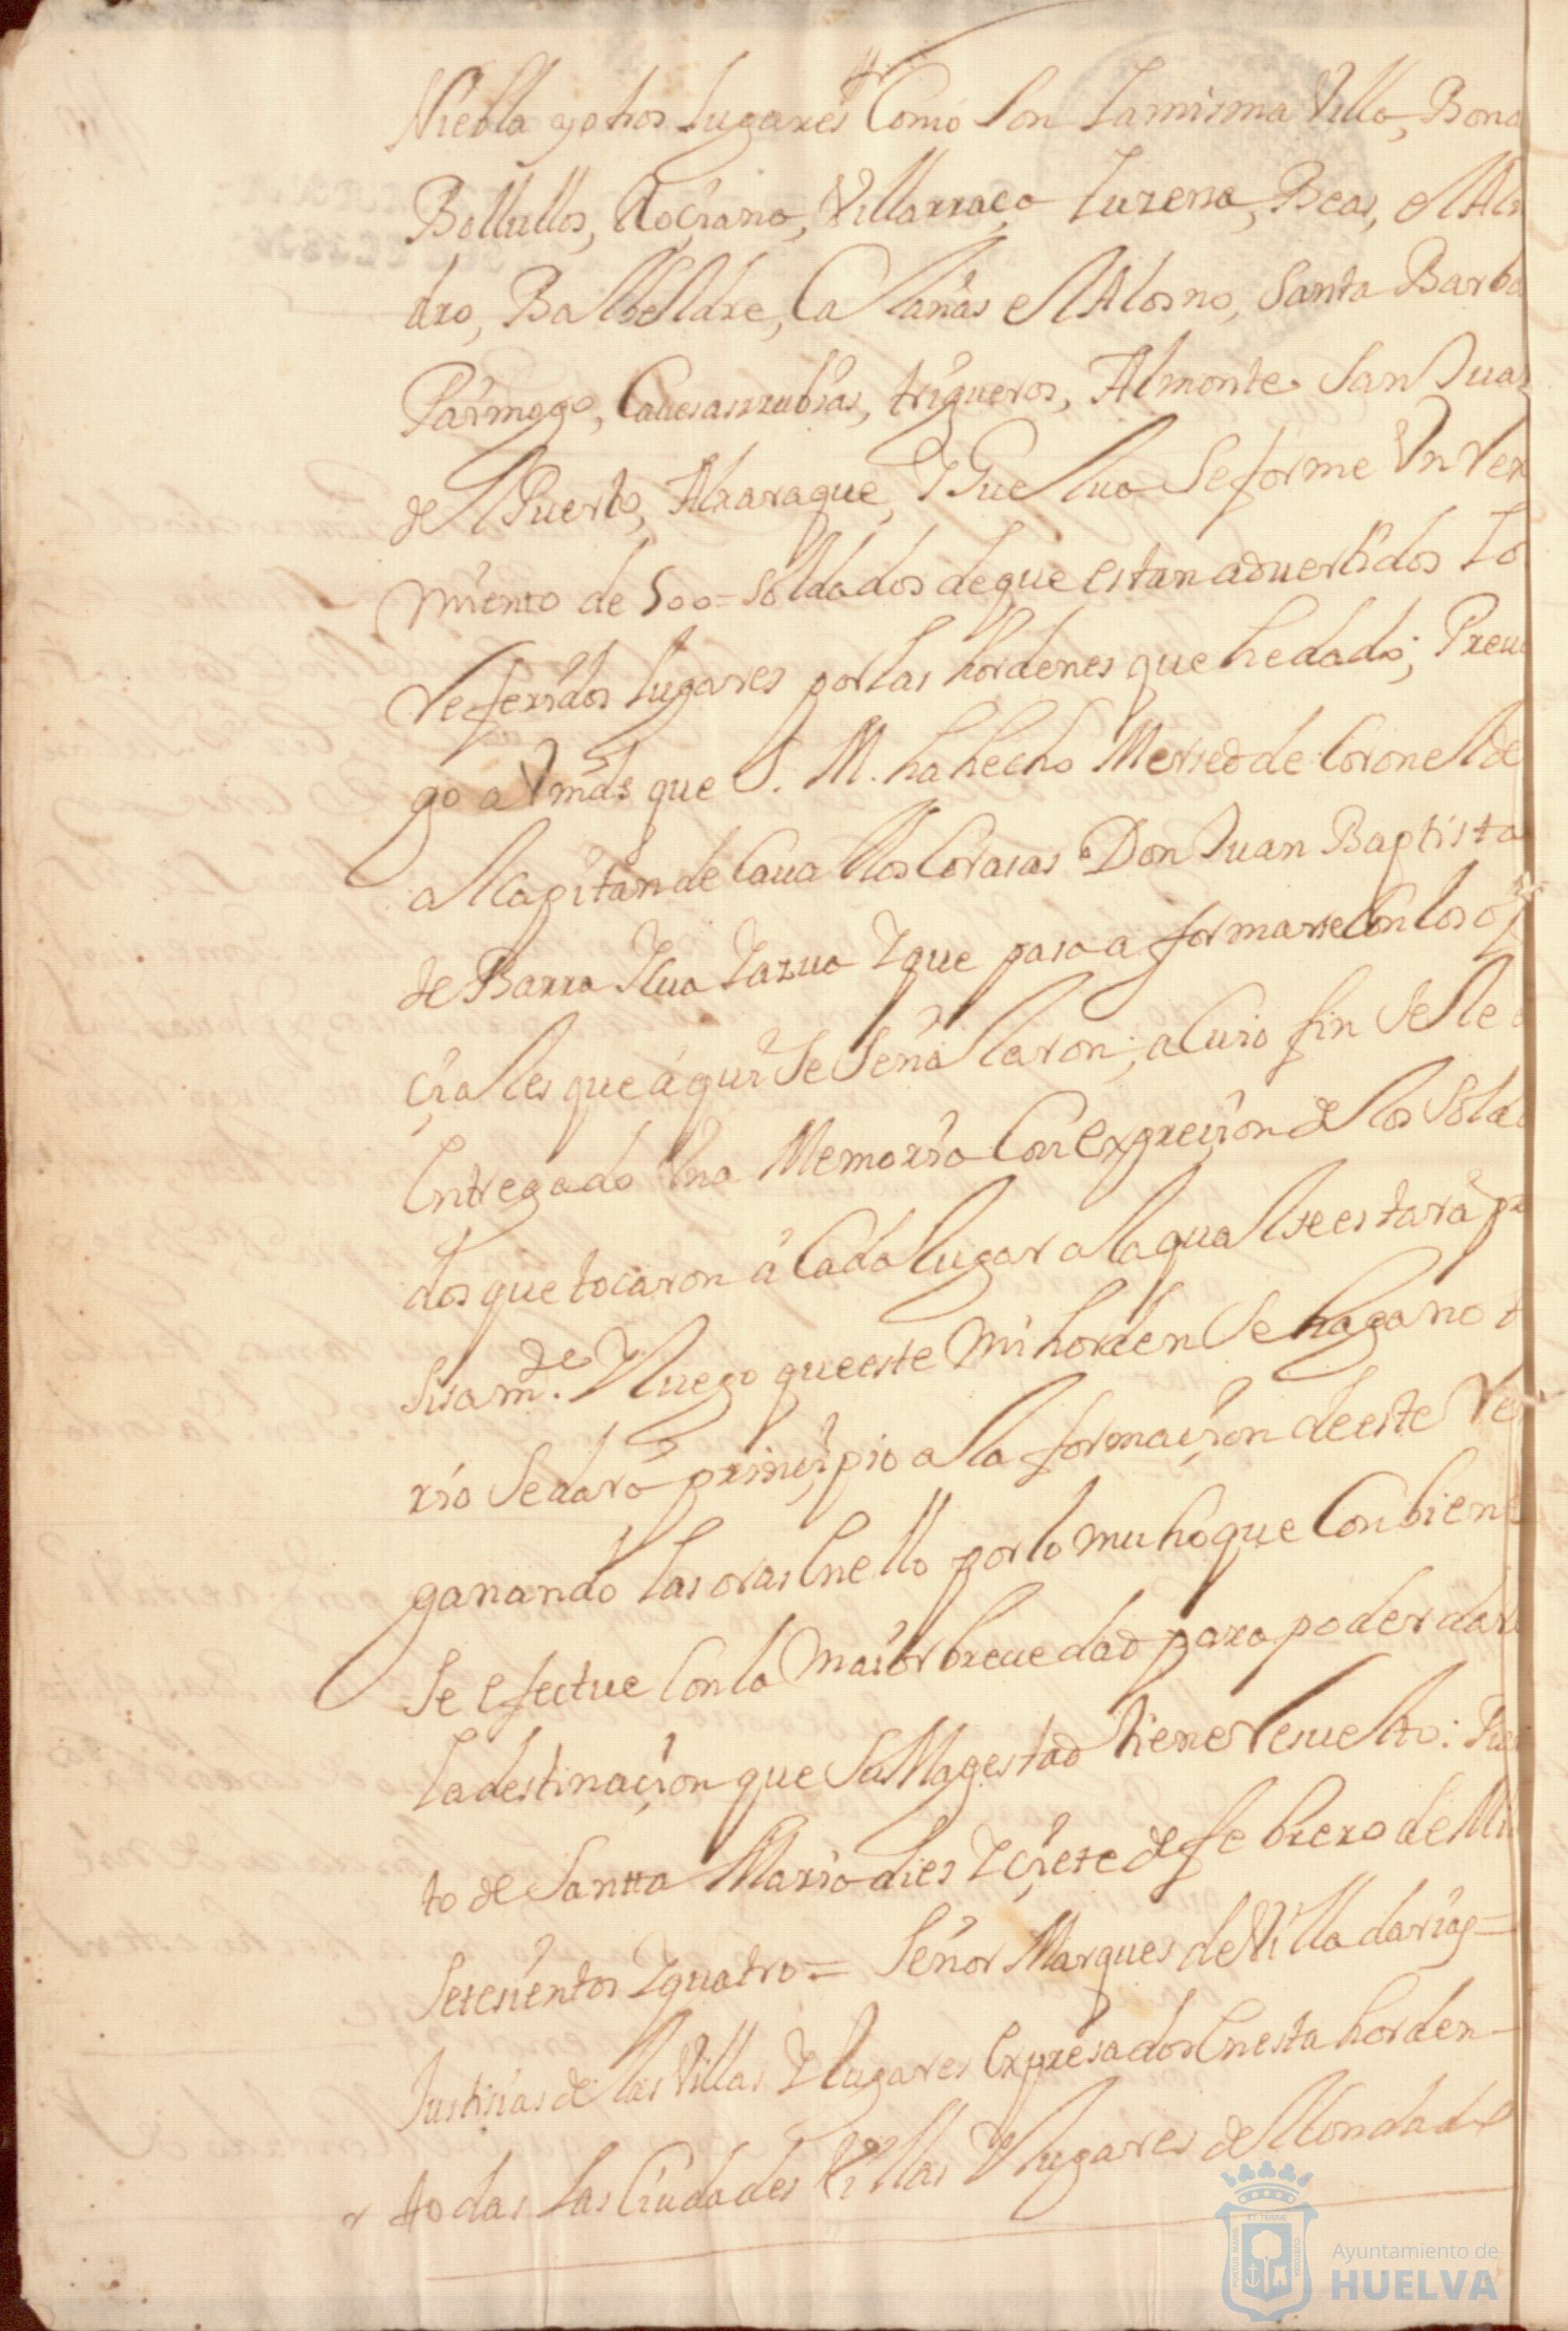 Niebla y otros lugares Como son La misma Villa, Bona
Bollullos, Roçiana, Villarraça Luzena, Beas, el Alm
dro, Balbeldre, Calañas el Alosno, Santa Barba
Paimogo, Cauesasrrubias, trigueros, Almonte San Jua
del Puerto, Alxaraque, Y Guelua Se forme Vn Rex
miento de 500= soldados de que estan aduertidos Lo
Referidos lugares por las hordenes que he dado; Preu
go a Vmds que S. M. ha hecho Mersed de Coronel de
al Capitan de Cauallos Corasas Don Juan Baptista
de Barra Y que pasa a formarse Con los ofi
çiales que aqui Se Señalaron; a Cuio fin Se le
Entregado Vna Memoria Con Expreçion de los Solda
dos que tocaron a Cada lugar a la qual se estara pre
sisamde. Y luego que este mi horden Se haga noto
rio Se dara prinçipio a la formaçion de este Re
ganando las oras En ello por lo muho que Conbiene
Se efectue Con la maior breuedad para poder darl
La destinaçion que Su Magestad tiene Resuelto: Pue
to de Santta Maria dies Y çiete de febrero de Mil
Setesientos Y quatro= Señor Marques de Villadarias=
Justisias de las Villas Y lugares Expresados En esta horden-
todas las Ciudades Villas Y lugares del Condado
Ayuntamiento de
HUELVA